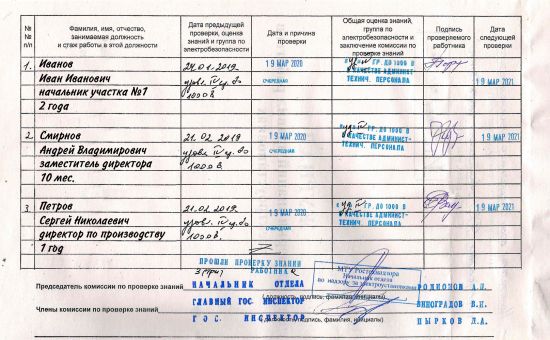 № № п/п
Фамилия, имя, отчество, занимаемая должность и стаж работы в этой должности
Дата предыдущей проверки, оценка знаний и группа по электробезопасности
Дата и причина проверки
Общая оценка знаний, группа по электробезопасности и заключение комиссии по проверке знаний
Подпись проверяемого работника
Дата следующей проверки
1. Иванов 24.01.2019 19 МАР 2020 ГР. ДО 1000 В
Иван Иванович IV гр. до ОЧЕРЕДНАЯ КАЧЕСТВЕ АДМИНИСТ-
начальник участка №1 1000 В. ТЕХНИЧ. ПЕРСОНАЛА
2 года
2 Смирнов 21.02 2019 19 МАР 2020 ГР. ДО 1000 В 19 МАР 2021
Андрей Владимирович IV гр. до ОЧЕРЕДНАЯ КАЧЕСТВЕ АДМИНИСТ-
заместитель директора 1000 В. ТЕХНИЧ. ПЕРСОНАЛА
10 мес.
3 Петров 21.02.2019 19 МАР 2020 ГР. ДО 1000 В 19 МАР 2021
Сергей Николаевич IV гр. до ОЧЕРЕДНАЯ КАЧЕСТВЕ АДМИНИСТ-
директор по производству 1000 В. ТЕХНИЧ. ПЕРСОНАЛА
1 год
ПРОШЛИ ПРОВЕРКУ ЗНАНИЙ
3 (три) РАБОТНИК
МТУ Ростехнадзора
Начальник отдела
по надзору за электроустановками
Председатель комиссии по проверке знаний НАЧАЛЬНИК ОТДЕЛА РОДИОНОВ А.П.
(должность, подпись, фамилия, инициалы)
Члены комиссии по проверке знаний ГЛАВНЫЙ ГОС. ИНСПЕКТОР ВИНОГРАДОВ В.И.
ГОС. ИНСПЕКТОР ПЫРКОВ Л.А.
(должность, подпись, фамилия, инициалы)